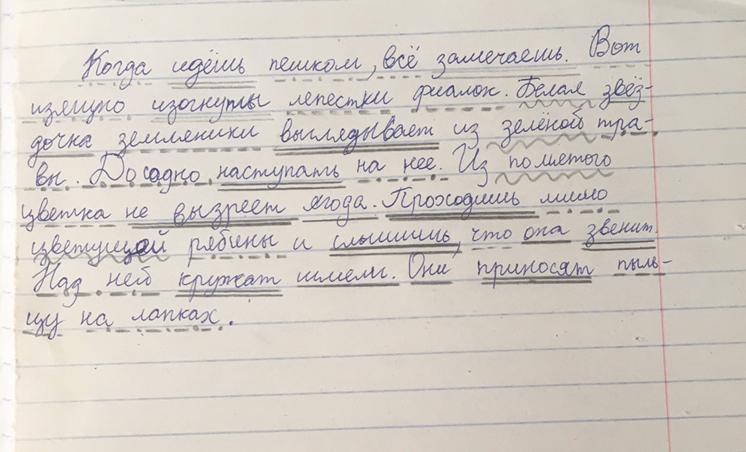 Когда идёшь пешком, всё замечаешь. Вот
изящно изогнуты лепестки фиалок. Белая звёз-
дочка земляники выглядывает из зелёной тра-
вы. Досадно наступать на нее. Из помятого
цветка не вызреет ягода. Проходишь мимо
цветущей рябины и слышишь, что она звенит.
Над ней кружат шмели. Они приносят пыль-
цу на лапках.